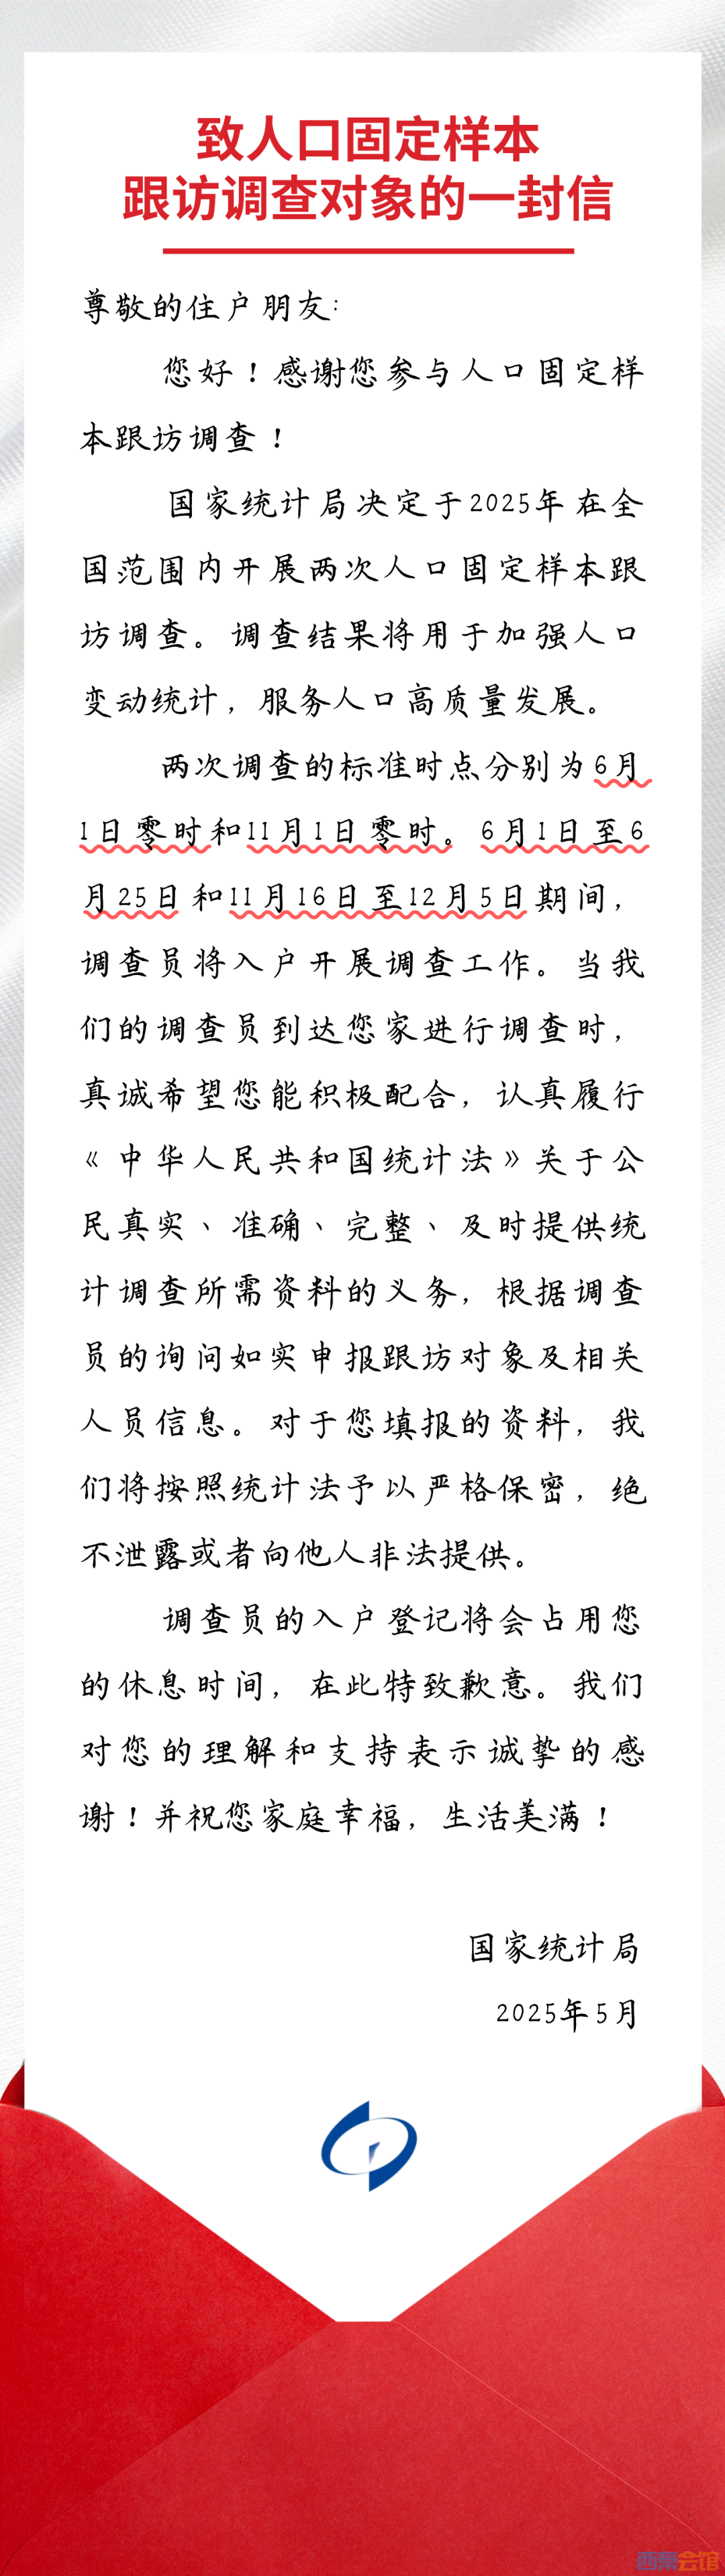 致人口固定样本
跟访调查对象的一封信
尊敬的住户朋友：
您好！感谢您参与人口固定样
本跟访调查！
国家统计局决定于2025年在全
国范围内开展两次人口固定样本跟
访调查。调查结果将用于加强人口
变动统计，服务人口高质量发展。
两次调查的标准时点分别为6月
1日零时和11月1日零时。6月1日至6
月25日和11月16日至12月5日期间，
调查员将入户开展调查工作。当我
们的调查员到达您家进行调查时，
真诚希望您能积极配合，认真履行
《中华人民共和国统计法》关于公
民真实、准确、完整、及时提供统
计调查所需资料的义务，根据调查
员的询问如实申报跟访对象及相关
人员信息。对于您填报的资料，我
们将按照统计法予以严格保密，绝
不泄露或者向他人非法提供。
调查员的入户登记将会占用您
的休息时间，在此特致歉意。我们
对您的理解和支持表示诚挚的感
谢！并祝您家庭幸福，生活美满！
国家统计局
2025年5月
西秦会馆